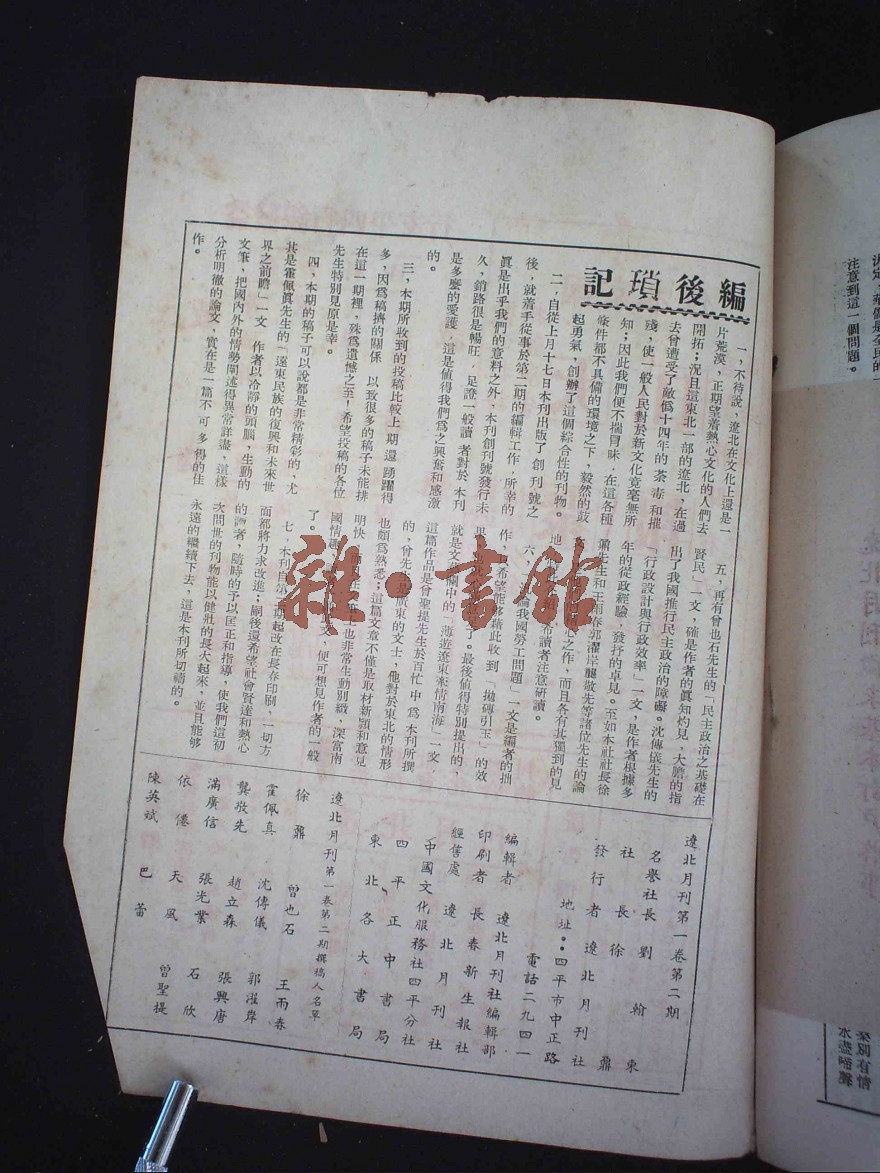 編後瑣記
一，不待說，遼北在文化上還是一
片荒漠，正期望着熱心文化的人們去
開拓；況且這東北一部的遼北，在過
去曾遭受了敵僞十四年的荼毒和摧
殘，使一般人民對於新文化竟毫無所
知；因此我們便不揣冒昧，在這各種
條件都不具備的環境之下，毅然的鼓
起勇氣，創辦了這個綜合性的刊物。
二，自從上月十七日本刊出版了創刊號之
後，就着手從事於第二期的編輯工作，所幸的
眞是出乎我們的意料之外，本刊創刊號發行未
久，銷路很是暢旺，足證一般讀者對於本刊
是多麽的愛護，這是値得我們爲之興奮和感激
的。
三，本期所收到的投稿比較上期還踴躍得
多，因爲稿擠的關係，以致很多的稿子未能排
在這一期裡，殊爲遺憾之至！希望投稿的各位
先生特別見原是幸。
四，本期的稿子可以說都是非常精彩的，尤
其是霍佩眞先生的「遠東民族的復興和未來世
界之前瞻」一文，作者以冷靜的頭腦，生動的
文筆，把國內外的情勢闡述得異常詳盡，這樣
分析明徹的論文，實在是一篇不可多得的佳
作。
五，再有曾也石先生的「民主政治之基礎在
賢民」一文，確是作者的眞知灼見，大膽的指
出了我國推行民主政治的障礙。沈傳儀先生的
「行政設計與行政效率」一文，是作者根據多
年的從政經驗，發抒的卓見。至如本社社長徐
鼐先生和王雨春郭濯岸龔敬先等諸位先生的論
心之作，而且各有其獨到的見
地，希讀者注意研讀。
六，論我國勞工問題」一文是編者的拙
作，希望能够藉此收到「拋磚引玉」的效
果了。最後值得特別提出的，
就是文藝欄中的「薄遊遼東來情南海」一文，
這篇作品是曾聖提先生於百忙中爲本刊所撰
的，曾先生是廣東的文士，他對於東北的情形
也頗爲熟悉；這篇文章不僅是取材新穎和意見
明快，也非常生動別緻，深富南
國情趣，文，便可想見作者的一般
了。
七，本刊自第三期起改在長春印刷，一切方
面都將力求改進；嗣後還希望社會賢達和熱心
的讀者，隨時的予以匡正和指導，使我們這初
次問世的刊物能以健壯的長大起來，並且能够
永遠的繼續下去，這是本刊所切禱的。
遼北月刊第一卷第二期
名譽社長 劉翰東
社長 徐鼐
發行者 遼北月刊社
地址：四平市中正路
電話二九四一
編輯者 遼北月刊社編輯部
印刷者 長春新生報社
經售處 遼北月刊社
中國文化服務社四平分社
四平正中書局
東北各大書局
遼北月刊第一卷第二期撰稿人名單
徐鼐 曾也石 王雨春
霍佩真 沈傳儀 郭濯岸
龔敬先 趙立森 張興唐
滿廣信 張光業 石欣
依僊 天風 曾聖提
陳英斌 巴蕾
注意到這一個問題。
水盡啼聲
雜·書館